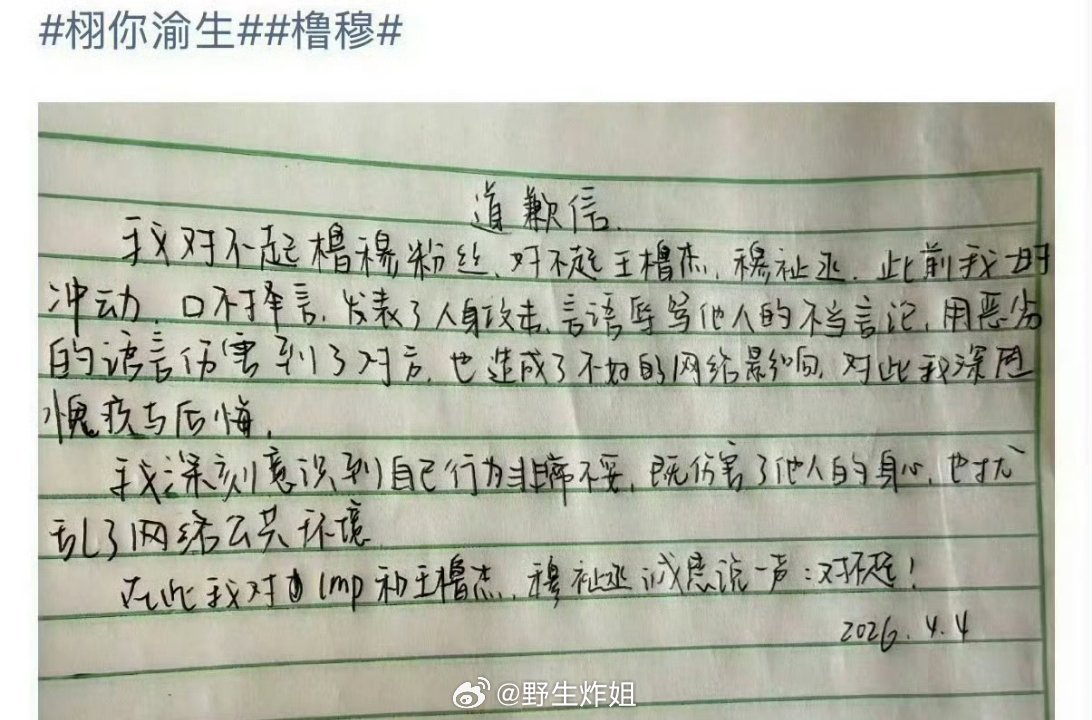 #栩你渝生##橹穆#
道歉信.
我对不起橹穆粉丝、对不起王橹杰、穆祉丞. 此前我一时
冲动, 口不择言, 发表了人身攻击, 言语辱骂他人的不当言论, 用恶劣
的语言伤害到了对方, 也造成了不好的网络影响, 对此我深感
愧疚与后悔,
我深刻意识到自己行为非常不妥, 既伤害了他人的身心, 也扰
乱了网络公共环境.
在此我对 lmp 和王橹杰, 穆祉丞诚恳说一声: 对不起!
2026.4.4
@野生炸姐